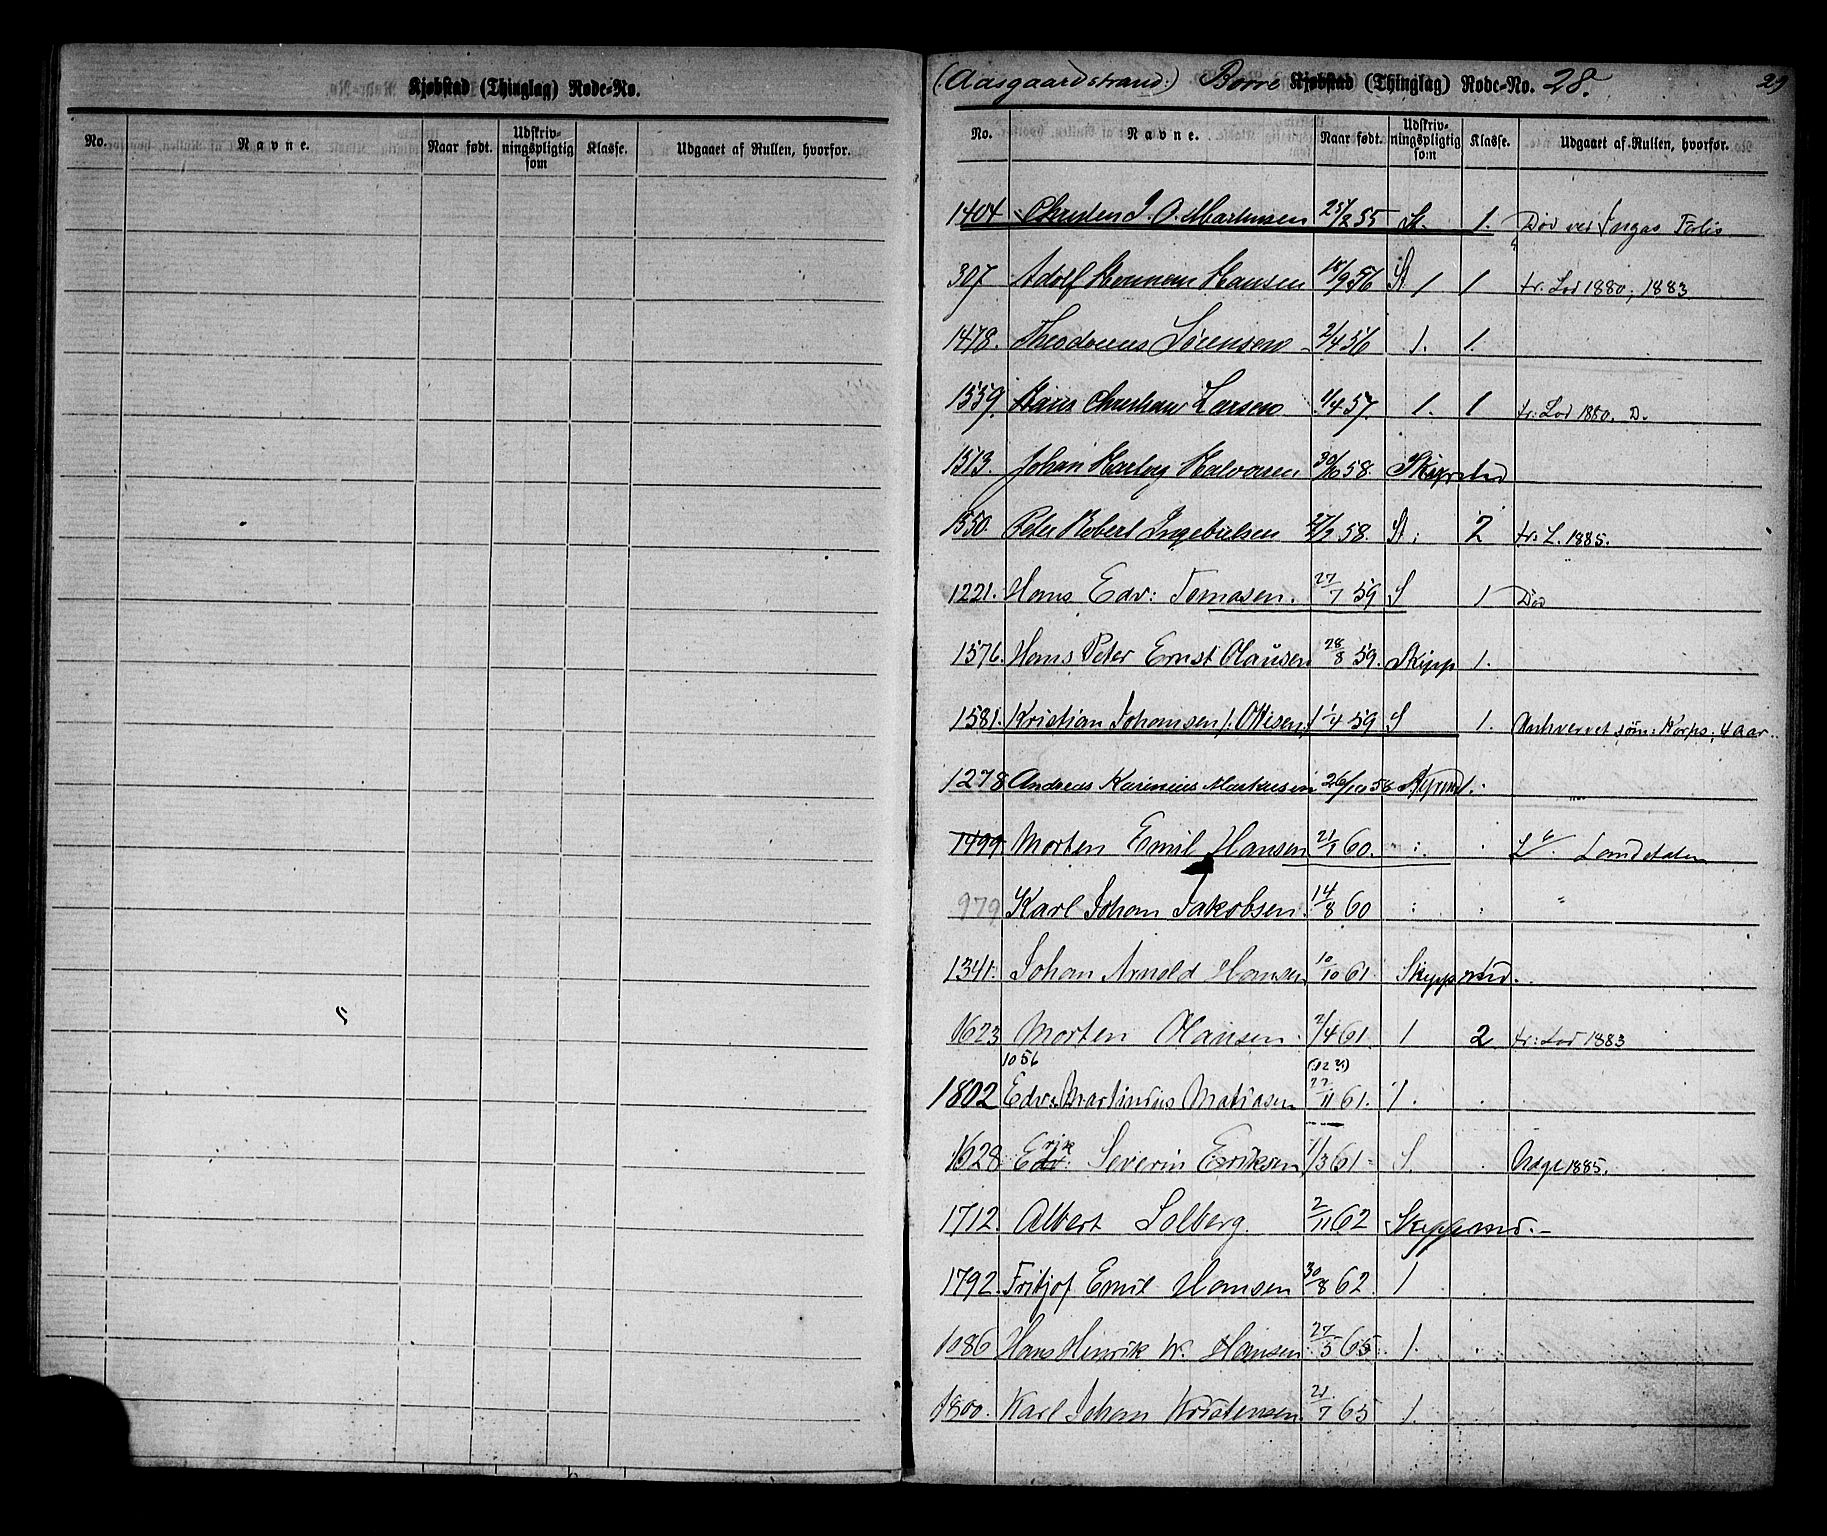 Kjøbstad (Thinglag) Rode-No.
No. Navne. Naar født. Udskrivningspligtig som Klasse. Udgaaet af Rullen, hvorfor.
(Aasgaardstrand.) Borre Kjøbstad (Thinglag) Rode-No. 28. 29
No. Navne. Naar født. Udskrivningspligtig som Klasse. Udgaaet af Rullen, hvorfor.
1404 O. Martinsen 55 1. Død
307 Adolf Hermann Hansen 18/9 56 1 1 fr. Lod 1880, 1883
1478. Sørensen 2/4 56 1. 1.
1559. Hans Christian Larsen 1/4 57. 1. 1 fr. Lod 1880. D.
1513. Johan Halvorsen 30/10 58.
1550. Peter Robert Ingebretsen 58. 2 fr. L. 1885.
1221. Hans Edv: Tomasen. 27/7 59 S 1 Død
1576. Hans Peter Ernst Olausen 28/8 59. Skipp 1.
1581. Kristian Johansen /: Ottisen / 1/4 59 S 1. 4 Aar.
1278 Andreas Karinius Markusen 26/10 58 Styrmd.
1499 Morten Emil Hansen 21/1 60.
979 Karl Johan Jakobsen. 14/8 60 "
1341. Johan Arnold Hansen 10/10 61 Skipps
1623 Morten Olausen. 2/4 61. 1 2 fr: Lod 1883
1056
1802 Edv: Martinius Matiasen 22/11 61. 1.
1628 Edv: Erik Severin Eriksen 1/3 61 S 1885.
1712. Albert Solberg. 2/11 62
1792. Fritjof Emil Hansen 30/8 62. 1
1086 Hans Hinrik W. Hansen 27/5 65 1.
1800. Karl Johan Kristensen 21/7 65 1.